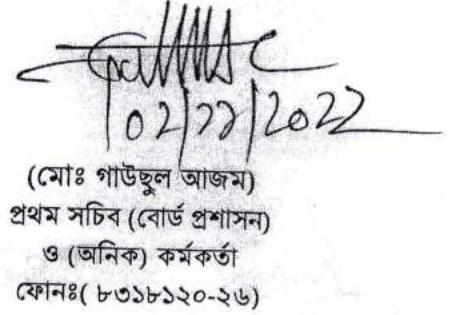 02/11/2022
(মোঃ গাউছুল আজম)
প্রথম সচিব (বোর্ড প্রশাসন)
ও (অনিক) কর্মকর্তা
ফোনঃ( ৮৩১৮১২০-২৬)